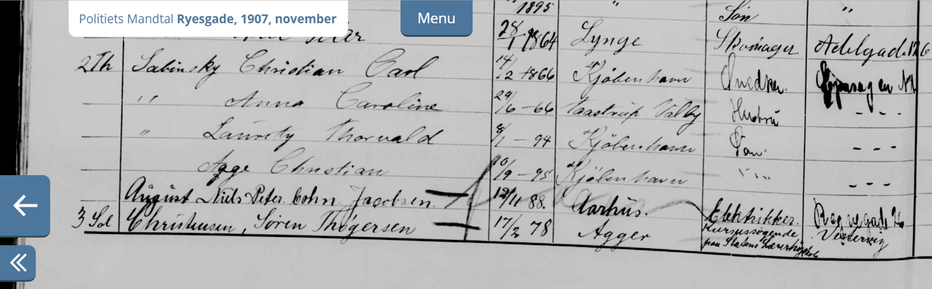 Politiets Mandtal Ryesgade, 1907, november
Menu
1895 " Søn "
28/1 1864 Lynge Skomager Adelgad. 126
2 Th Sabinsky Christian Carl 14/2 1866 Kjøbenhavn Snedker
" Anna Caroline 29/6 - 66 Taastrup Valby Hustru - - -
" Thorvald 8/1 - 94 Kjøbenhavn Søn - - -
Aage Christian 10/9 - 95 Kjøbenhavn " - - -
August Niels Peter Cohn Jacobsen 12/11 88. Aarhus. Elektrikker.
3 Sal Christensen, Søren Thøgersen 17/2 78 Agger Kursussøgende Vestervig
fra Statens